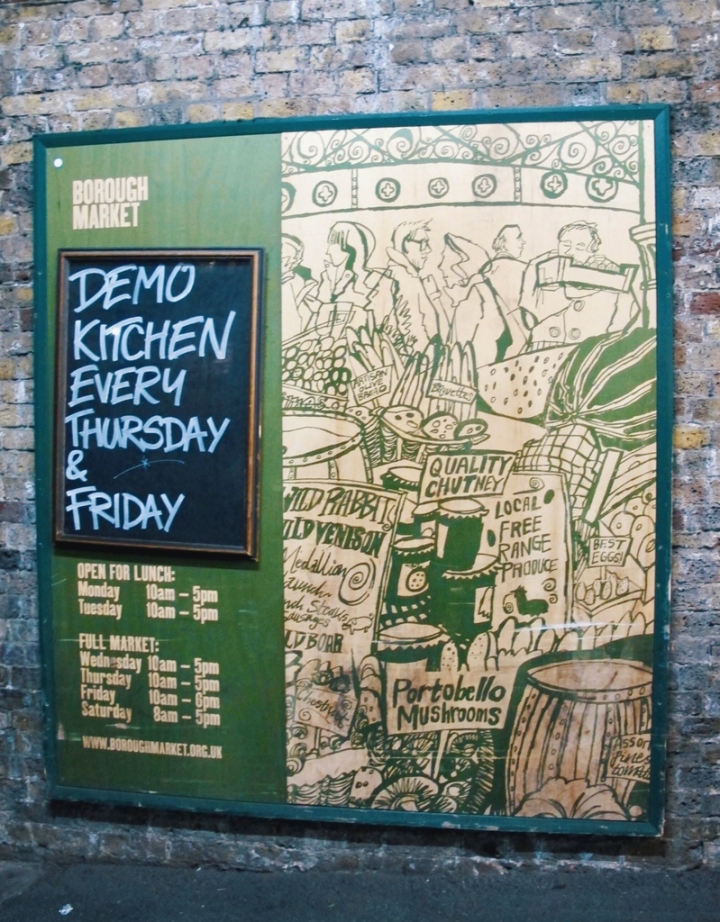 BOROUGH
MARKET
DEMO
KITCHEN
EVERY
THURSDAY
&
FRIDAY
OPEN FOR LUNCH:
Monday 10am – 5pm
Tuesday 10am – 5pm
FULL MARKET:
Wednesday 10am – 5pm
Thursday 10am – 5pm
Friday 10am – 6pm
Saturday 8am – 5pm
WWW.BOROUGHMARKET.ORG.UK
ARTISAN
OLIVE
BREAD
Baguettes
QUALITY
CHUTNEY
WILD RABBIT
WILD VENISON
Medallion
Steaks
Sausages
WILD BOAR
LOCAL
FREE
RANGE
PRODUCE
BEST
EGGS!
Portobello
MUSHROOMS